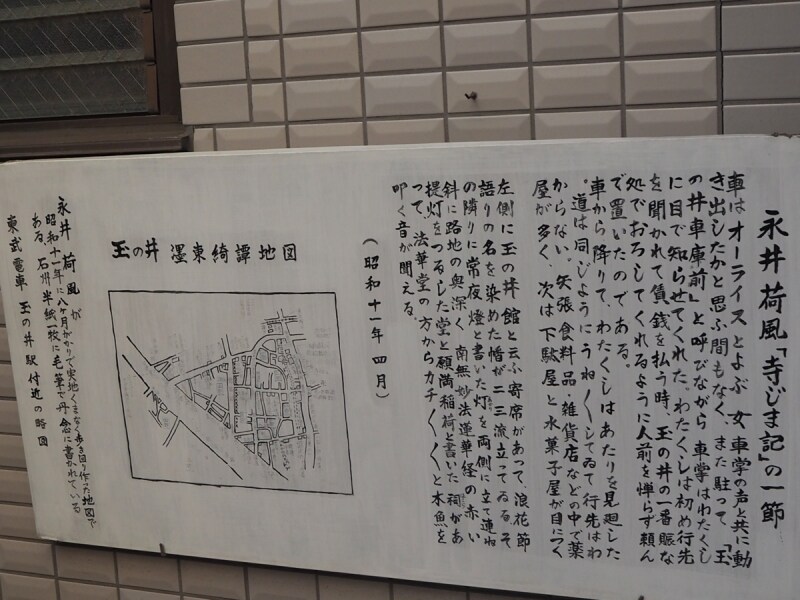 永井荷風「寺じま記」の一節
車はオーライスとよぶ女車掌の声と共に動
き出したかと思ふ間もなく、また駐って、「玉
の井車庫前」と呼びながら車掌はわたくし
に目で知らせてくれた。わたくしは初め行先
を聞かれて賃銭を払う時、玉の井の一番賑な
処でおろしてくれるように人前を憚らず頼ん
で置いたのである。
車から降りて、わたくしはあたりを見廻した
。道は同じようにうねうねしてゐて行先はわ
からない。矢張食料品・雑貨店などの中で薬
屋が多く、次は下駄屋と水菓子屋が目につく
左側に玉の井館と云ふ寄席があって、浪花節
語りの名を染めた幡が二三流立ってゐる。そ
の隣りに常夜燈と書いた灯を両側に立て連ね
斜に路地の奥深く、南無妙法蓮華経の赤い
提灯をつるした堂と願満稲荷と書いた祠があ
って、法華堂の方からカチ〱〱と木魚を
叩く音が聞える。
(昭和十一年四月)
玉の井 濹東綺譚地図
永井荷風が
昭和十一年に八ヶ月がかりで実地くまなく歩き回り作った地図で
ある。石州半紙一枚に毛筆で丹念に書かれている
東武電車 玉の井駅付近の略図